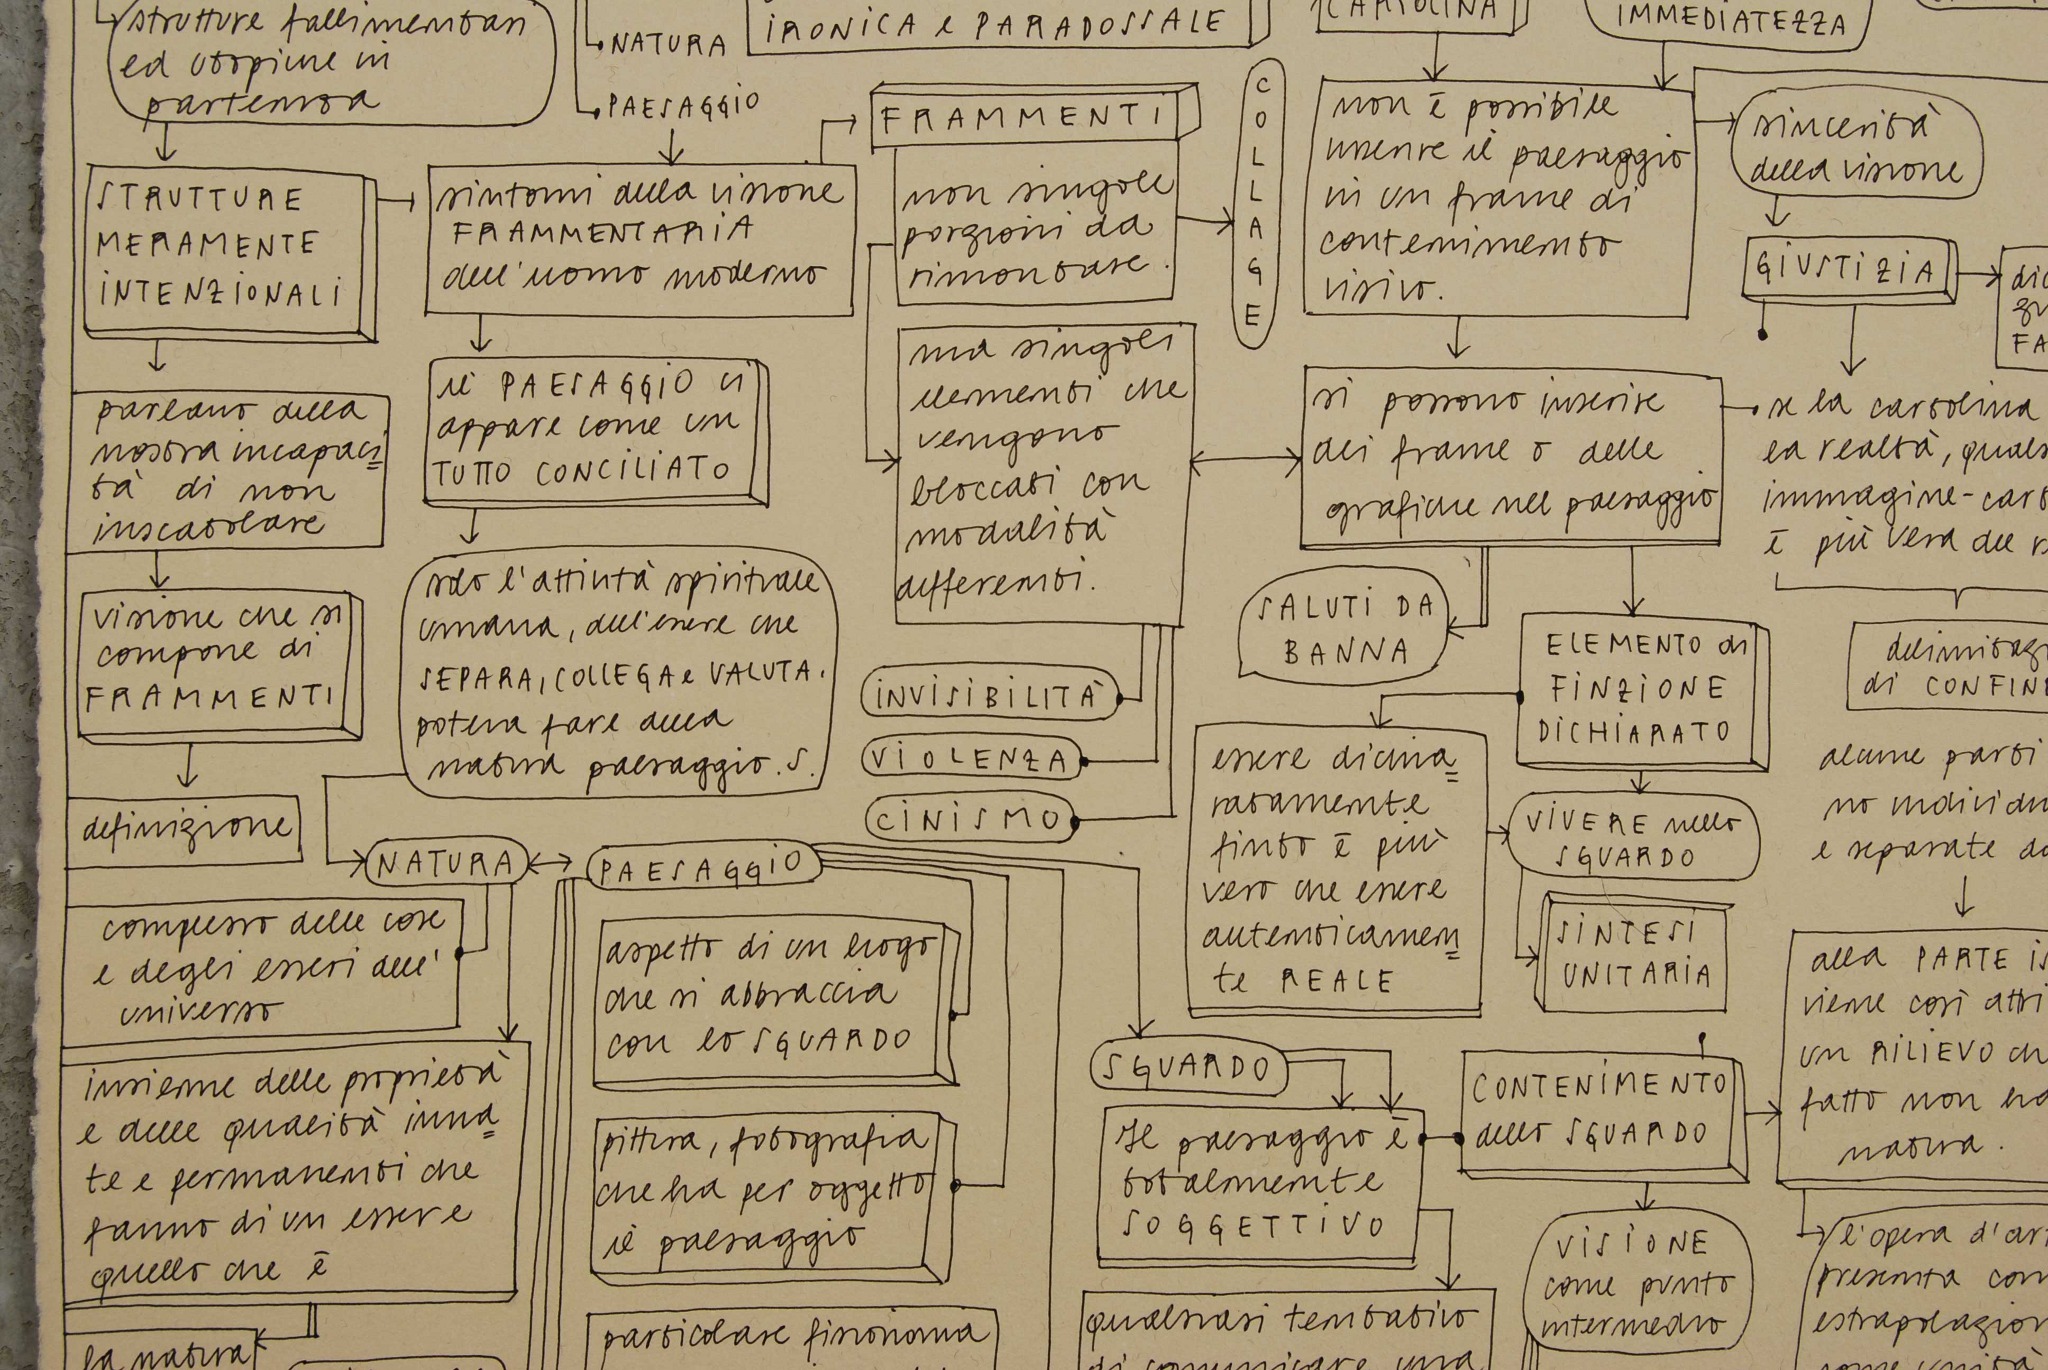 strutture fallimentari
ed utopiche in
partenza
NATURA
PAESAGGIO
IRONICA e PARADOSSALE
CARTOLINA
IMMEDIATEZZA
STRUTTURE
MERAMENTE
INTENZIONALI
parlano della
nostra incapaci
tà di non
inscatolare
visione che si
compone di
FRAMMENTI
definizione
sintomi della visione
FRAMMENTARIA
dell'uomo moderno
il PAESAGGIO ci
appare come un
TUTTO CONCILIATO
solo l'attività spirituale
umana, dell'essere che
SEPARA, COLLEGA e VALUTA.
poteva fare della
natura paesaggio. S.
FRAMMENTI
non singole
porzioni da
rimontare.
ma singoli
elementi che
vengono
bloccati con
modalità
differenti.
INVISIBILITÀ
VIOLENZA
CINISMO
COLLAGE
non è possibile
inserire il paesaggio
in un frame di
contenimento
visivo.
si possono inserire
dei frame o delle
grafiche nel paesaggio
SALUTI DA
BANNA
ELEMENTO di
FINZIONE
DICHIARATO
essere dichia
ratamente
finto è più
vero che essere
autenticamen
te REALE
VIVERE nello
SGUARDO
SINTESI
UNITARIA
sincerità
della visione
GIUSTIZIA
FA
se la cartolina
la realtà,
immagine-
è più vera del
di CONFINE
alcune parti
no
e separate
alla PARTE
viene così
un RILIEVO
fatto non ha
natura.
l'opera d'
presenta
NATURA
PAESAGGIO
complesso delle cose
e degli esseri dell'
universo
insieme delle proprietà
e delle qualità inna
te e permanenti che
fanno di un essere
quello che è
la natura
aspetto di un luogo
che si abbraccia
con lo SGUARDO
pittura, fotografia
che ha per oggetto
il paesaggio
particolare fisionomia
SGUARDO
Il paesaggio è
totalmente
SOGGETTIVO
qualsiasi tentativo
di comunicare una
CONTENIMENTO
dello SGUARDO
VISIONE
come punto
intermedio